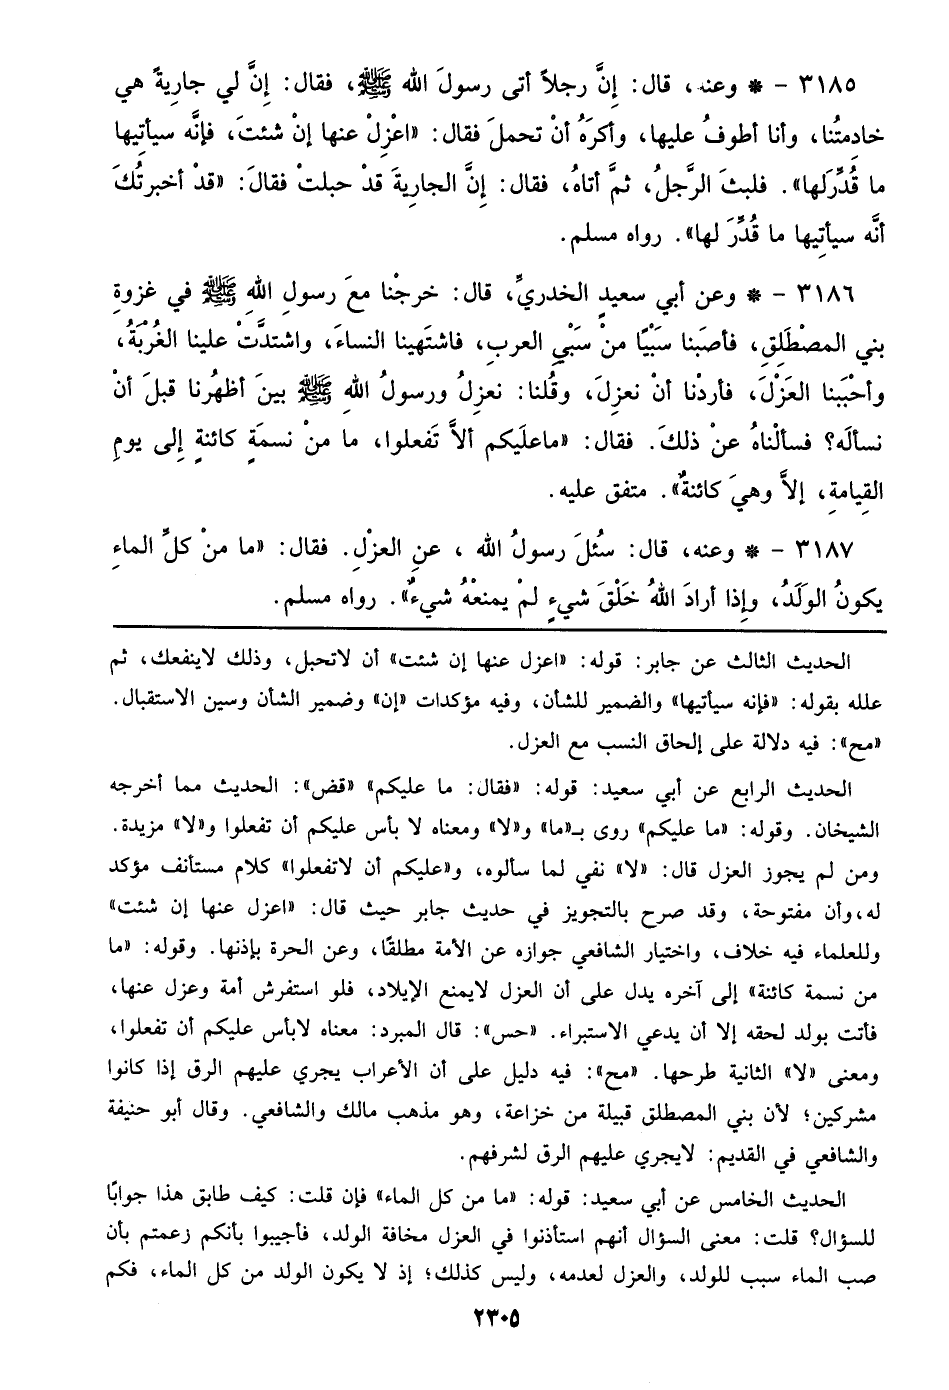 ٣١٨٥ - * وعنه، قال: إنَّ رجلاً أتى رسولَ الله ﷺ، فقال: إنَّ لي جاريةً هي
خادمتُنا، وأنا أطوفُ عليها، وأكرَهُ أنْ تحملَ فقال: «اعْزِلْ عنها إنْ شئتَ، فإنَّه سيأتِيها
ما قُدِّرَلها». فلبثَ الرَّجلُ، ثمَّ أتاهُ، فقال: إنَّ الجاريةَ قدْ حبلتْ فقالَ: «قدْ أخبرتُكَ
أنَّه سيأتِيها ما قُدِّرَ لها». رواه مسلم.
٣١٨٦ - * وعن أبي سعيدٍ الخدريِّ، قال: خرجْنا معَ رسولِ اللهِ ﷺ في غزوةِ
بني المصْطَلِقِ، فأصبَنا سَبْيًا منْ سَبْيِ العربِ، فاشتَهينا النساءَ، واشتدَّتْ علينا الغُرْبَةُ،
وأحْبَبنا العَزْلَ، فأردْنا أنْ نعزِلَ، وقُلنا: نعزِلُ ورسولُ اللهِ ﷺ بينَ أظهُرنا قبلَ أنْ
نسألَه؟ فسألْناهُ عنْ ذلكَ. فقال: «ماعلَيكم ألاَّ تَفعلوا، ما منْ نسمَةٍ كائنةٍ إلى يومِ
القِيامةِ، إلاَّ وهيَ كائنةٌ». متفق عليه.
٣١٨٧ - * وعنه، قال: سُئلَ رسولُ الله ، عنِ العزْلِ. فقال: «ما منْ كلِّ الماءِ
يكونُ الوَلَدُ، وإذا أرادَ اللهُ خَلْقَ شيءٍ لمْ يمنعْهُ شيءٌ». رواه مسلم.
الحديث الثالث عن جابر: قوله: «اعزل عنها إن شئت» أن لاتحبل، وذلك لاينفعك، ثم
علله بقوله: «فإنه سيأتيها» والضمير للشأن، وفيه مؤكدات «إن» وضمير الشأن وسين الاستقبال.
«مح»: فيه دلالة على إلحاق النسب مع العزل.
الحديث الرابع عن أبي سعيد: قوله: «فقال: ما عليكم» «قض»: الحديث مما أخرجه
الشيخان. وقوله: «ما عليكم» روى بـ«ما» و«لا» ومعناه لا بأس عليكم أن تفعلوا و«لا» مزيدة.
ومن لم يجوز العزل قال: «لا» نفي لما سألوه، و«عليكم أن لاتفعلوا» كلام مستأنف مؤكد
له،وأن مفتوحة، وقد صرح بالتجويز في حديث جابر حيث قال: «اعزل عنها إن شئت»
وللعلماء فيه خلاف، واختيار الشافعي جوازه عن الأمة مطلقًا، وعن الحرة بإذنها. وقوله: «ما
من نسمة كائنة» إلى آخره يدل على أن العزل لايمنع الإيلاد، فلو استفرش أمة وعزل عنها،
فأتت بولد لحقه إلا أن يدعي الاستبراء. «حس»: قال المبرد: معناه لابأس عليكم أن تفعلوا،
ومعنى «لا» الثانية طرحها. «مح»: فيه دليل على أن الأعراب يجري عليهم الرق إذا كانوا
مشركين؛ لأن بني المصطلق قبيلة من خزاعة، وهو مذهب مالك والشافعي. وقال أبو حنيفة
والشافعي في القديم: لايجري عليهم الرق لشرفهم.
الحديث الخامس عن أبي سعيد: قوله: «ما من كل الماء» فإن قلت: كيف طابق هذا جوابًا
للسؤال؟ قلت: معنى السؤال أنهم استأذنوا في العزل مخافة الولد، فأجيبوا بأنكم زعمتم بأن
صب الماء سبب للولد، والعزل لعدمه، وليس كذلك؛ إذ لا يكون الولد من كل الماء، فكم
٢٣٠٥